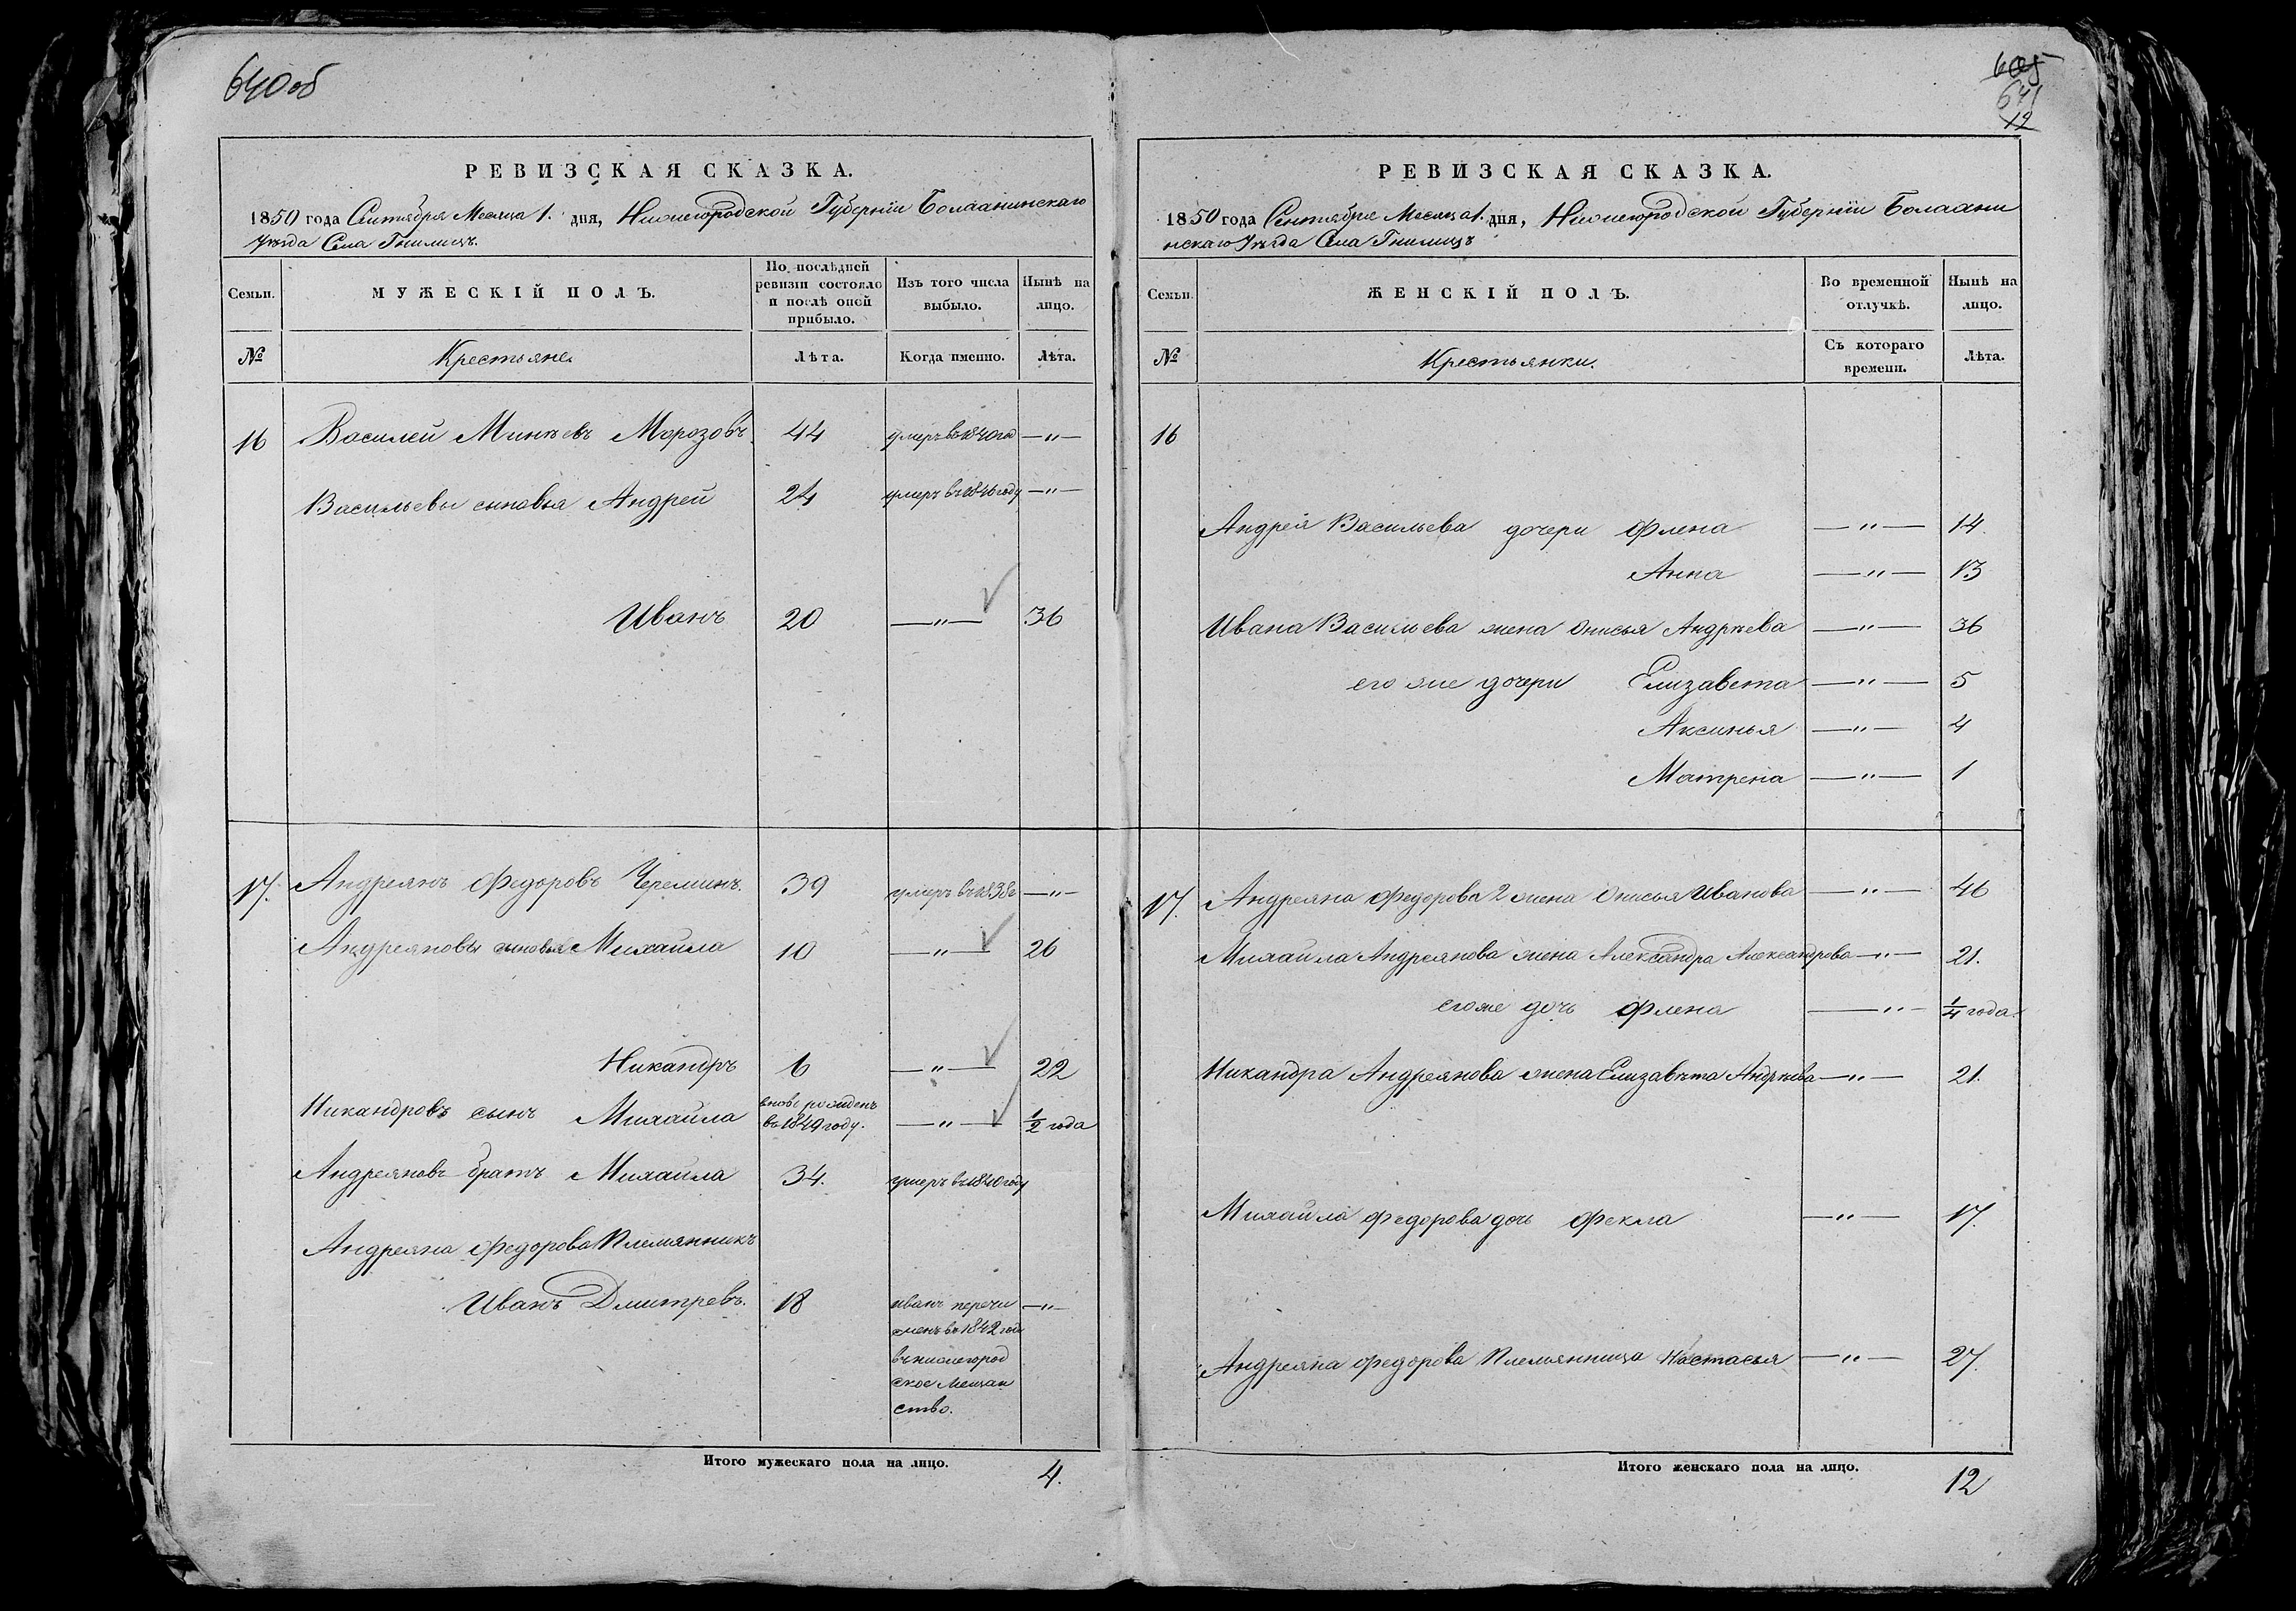 640об
РЕВИЗСКАЯ СКАЗКА.
1850 года Сентября Месяца 1. дня, Нижегородской Губерніи Балахнинскаго
Уѣзда Села Гнилицъ.
Семьи. МУЖЕСКІЙ ПОЛЪ. По послѣдней ревизіи состояло и послѣ оной прибыло. Изъ того числа выбыло. Нынѣ на лицо.
№ Крестьяне Лѣта. Когда именно. Лѣта.
16 Василей Минѣевъ Морозовъ 44 умеръ въ 1840 год —"—
Васильевы сыновья Андрей 24 умеръ въ 1846 году —"—
Иванъ 20 —"— 36
17. Андреянъ Федоровъ Череминъ. 39 умеръ въ 1838 г —"—
Андреяновы сыновья Михайла 10 —"— 26
Никандръ 6 —"— 22
Никандровъ сынъ Михайла вновь рожденъ въ 1849 году. —"— 1/2 года
Андреяновъ братъ Михайла 34. умеръ въ 1840 году
Андреяна Федорова Племянникъ
Иванъ Дмитревъ. 18 иванъ перечи —"—
сленъ въ 1842 году
въ нижегород
ское Мещан
ство.
Итого мужескаго пола на лицо. 4.
641
12
РЕВИЗСКАЯ СКАЗКА.
1850 года Сентября Месяца 1. дня, Нижегородской Губерніи Балахни
нскаго Уѣзда Села Гнилицъ
Семьи. ЖЕНСКІЙ ПОЛЪ. Во временной отлучкѣ. Нынѣ на лицо.
№ Крестьянки. Съ котораго времени. Лѣта.
16
Андрея Васильева дочери Флена —"— 14
Анна —"— 13
Ивана Васильева жена Онисья Андрѣева —"— 36
его же дочери Елизавета —"— 5
Аксинья —"— 4
Матрена —"— 1
17. Андреяна Федорова 2 жена Онисья Иванова —"— 46
Михайла Андреянова жена Александра Александрова —"— 21.
его же дочь Флена —"— 1/4 года.
Никандра Андреянова жена Елизавѣта Андрѣева —"— 21.
Михайла Федорова дочь Фекла —"— 17.
Андреяна Федорова Племянница Настасья —"— 27.
Итого женскаго пола на лицо. 12